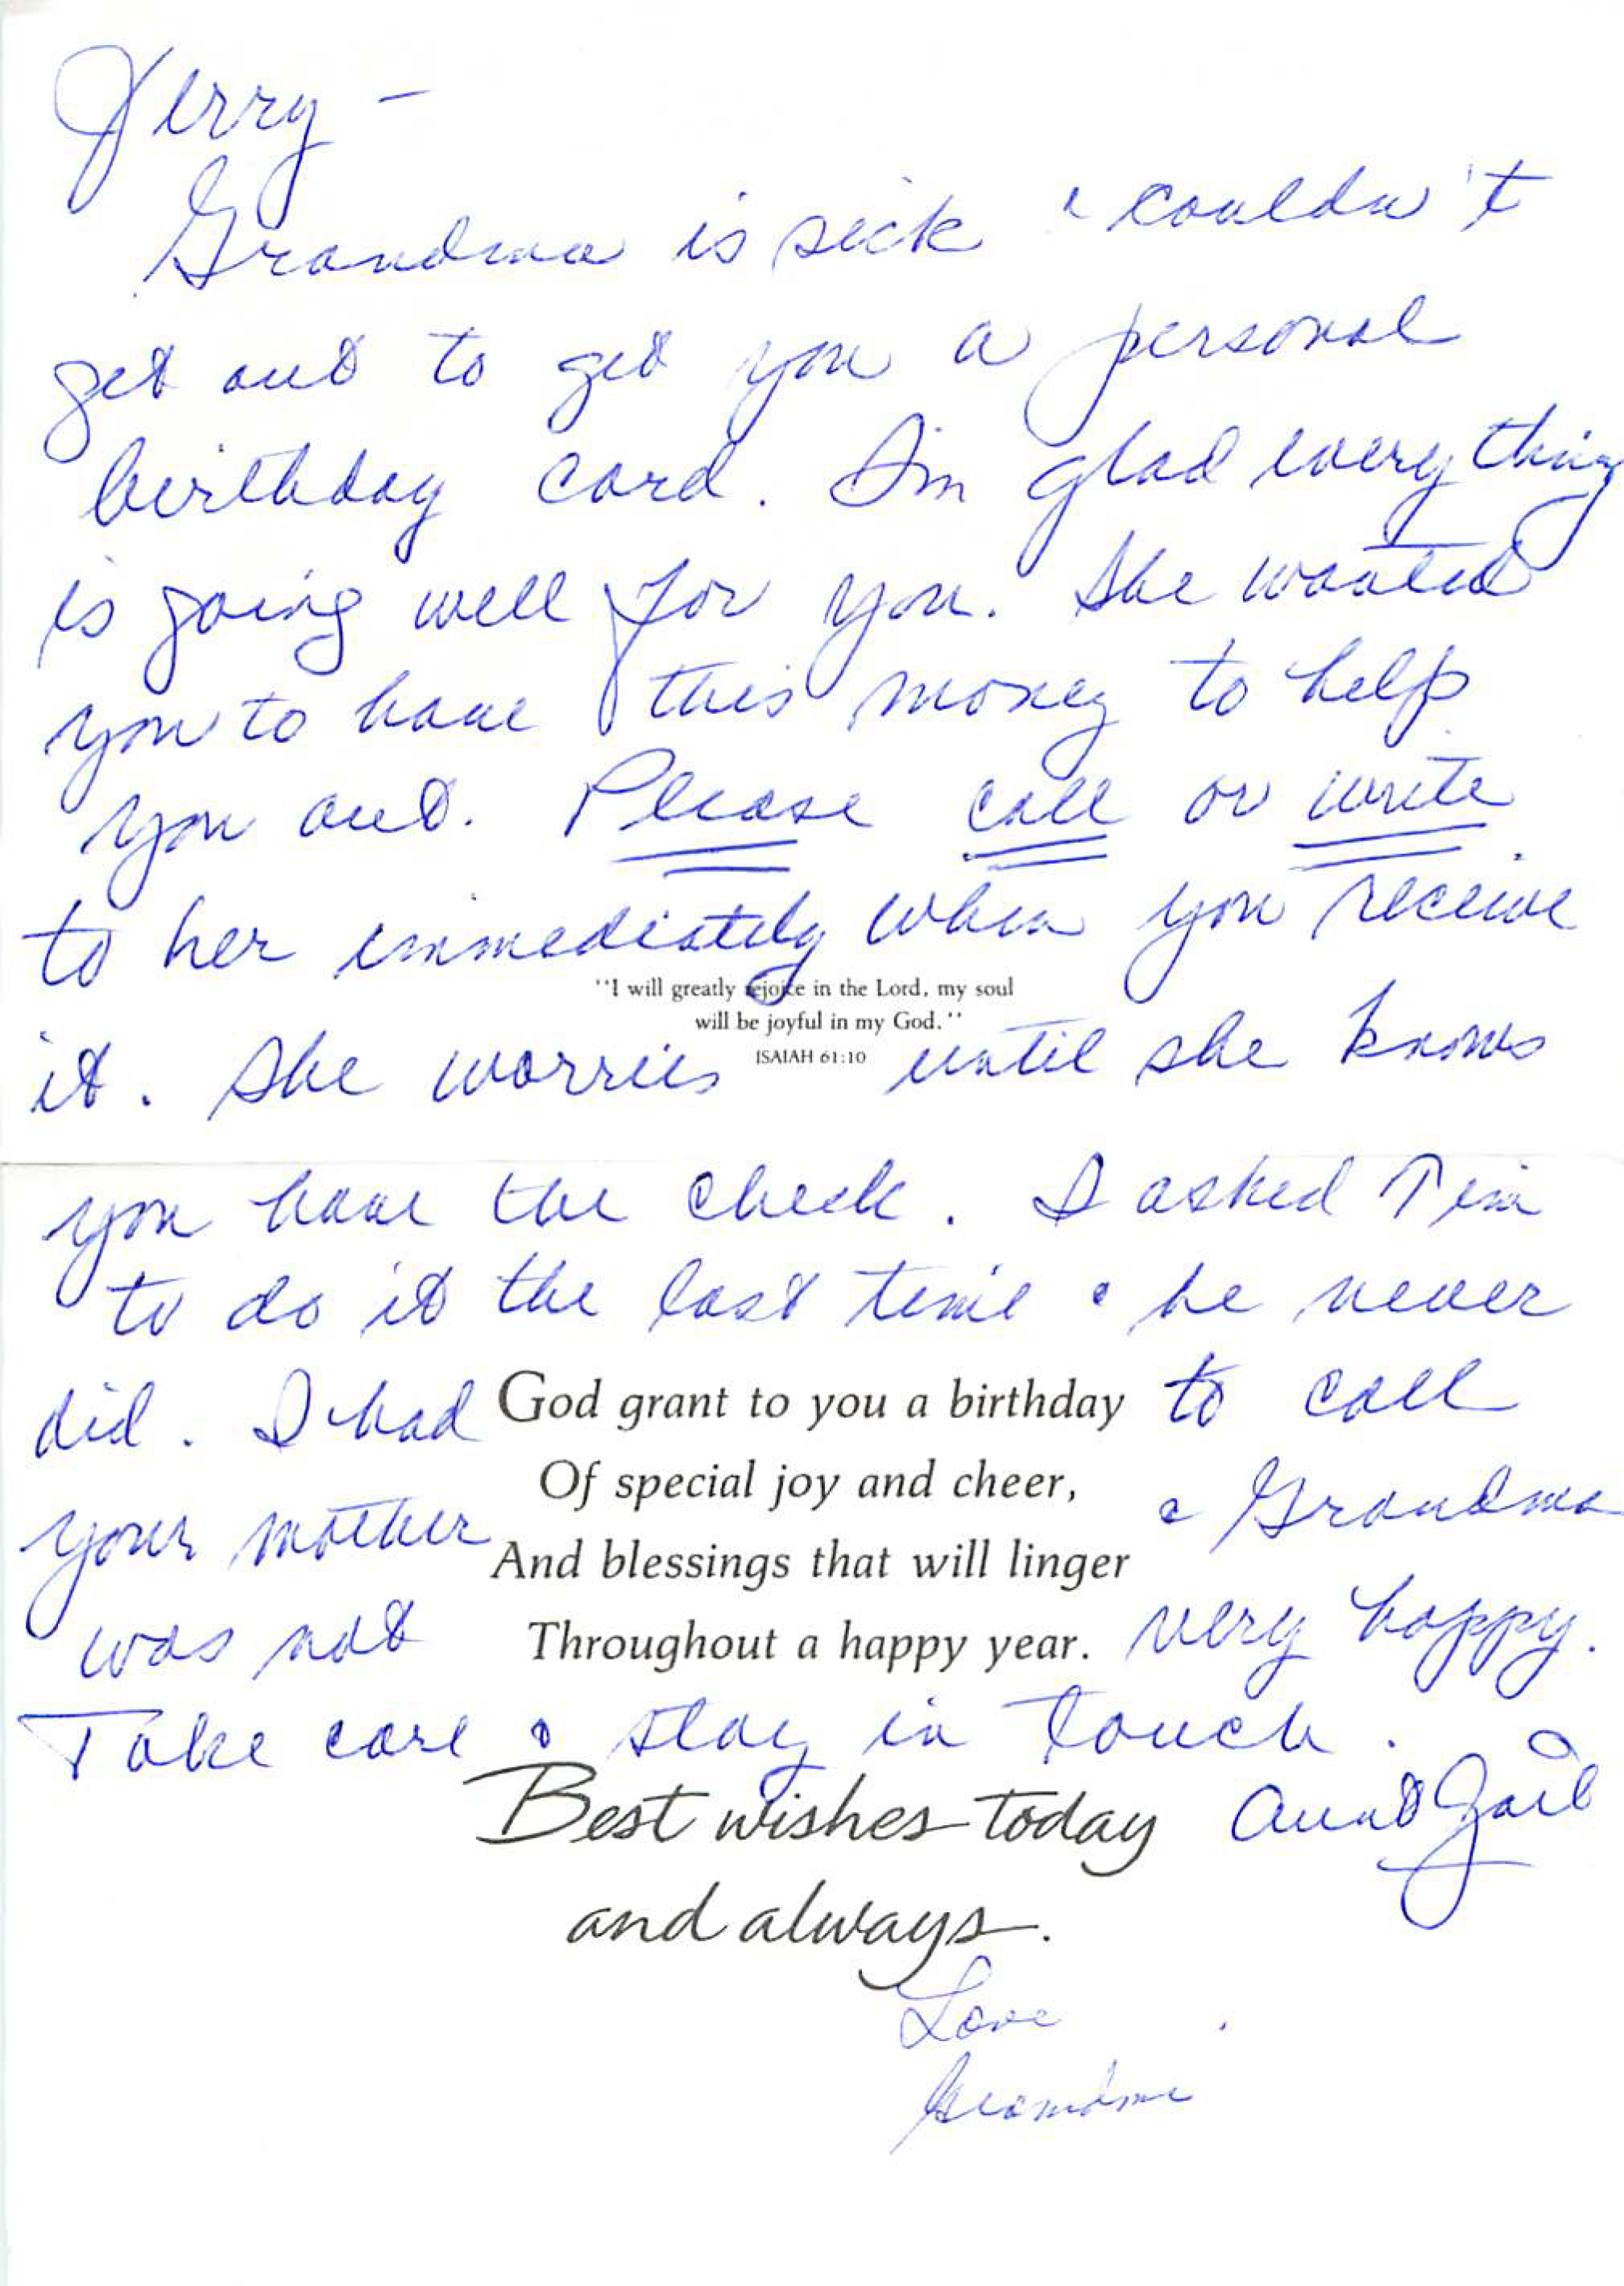 Jerry -
Grandma is sick & couldn't
get out to get you a personal
birthday card. I'm glad everything
is going well for you. She wanted
you to have this money to help
you out. Please call or write
to her immediately when you receive
"I will greatly rejoice in the Lord, my soul
will be joyful in my God."
ISAIAH 61:10
it. She worries until she knows
you have the check. I asked Tim
to do it the last time & he never
did. I had to call
God grant to you a birthday
Of special joy and cheer,
your mother & Grandma
And blessings that will linger
was not very happy.
Throughout a happy year.
Take care & stay in touch.
Aunt Gail
Best wishes today
and always.
Love
Grandma